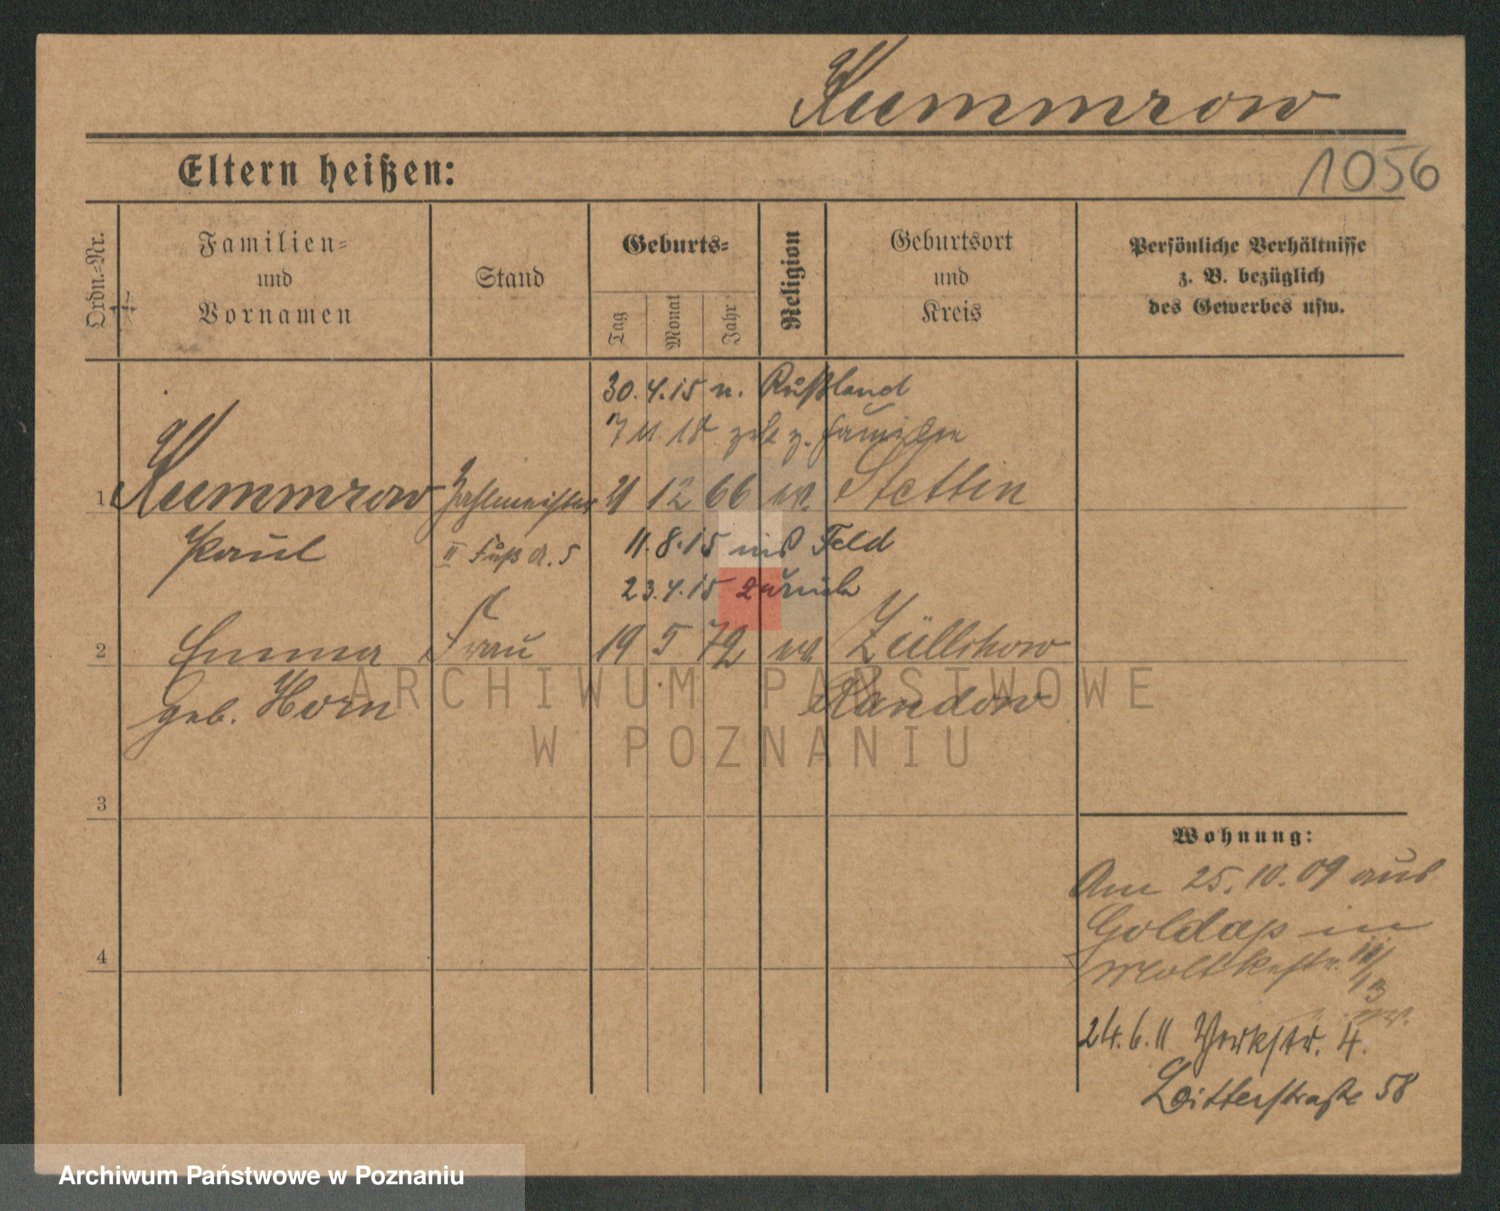 Kummrow
Eltern heißen:
1056
Ordn.-Nr.
Familien-
und
Vornamen
Stand
Geburts-
Tag
Monat
Jahr
Religion
Geburtsort
und
Kreis
Persönliche Verhältnisse
z. B. bezüglich
des Gewerbes usw.
30.4.15 n. Rußland
11. 18 z. Familie
1 Kummrow Zahlmeister 21 12 66 ev. Stettin
Paul II Fuß A. 5 11.8.15 ins Feld
23.4.15 zurück
2 Emma Frau 19 5 72 ev. Züllchow
geb. Horn Randow
ARCHIWUM PAŃSTWOWE
W POZNANIU
3
Wohnung:
Am 25.10.09 aus
Goldap in
4
Moltkestr.
24.6.11 4.
58
Archiwum Państwowe w Poznaniu